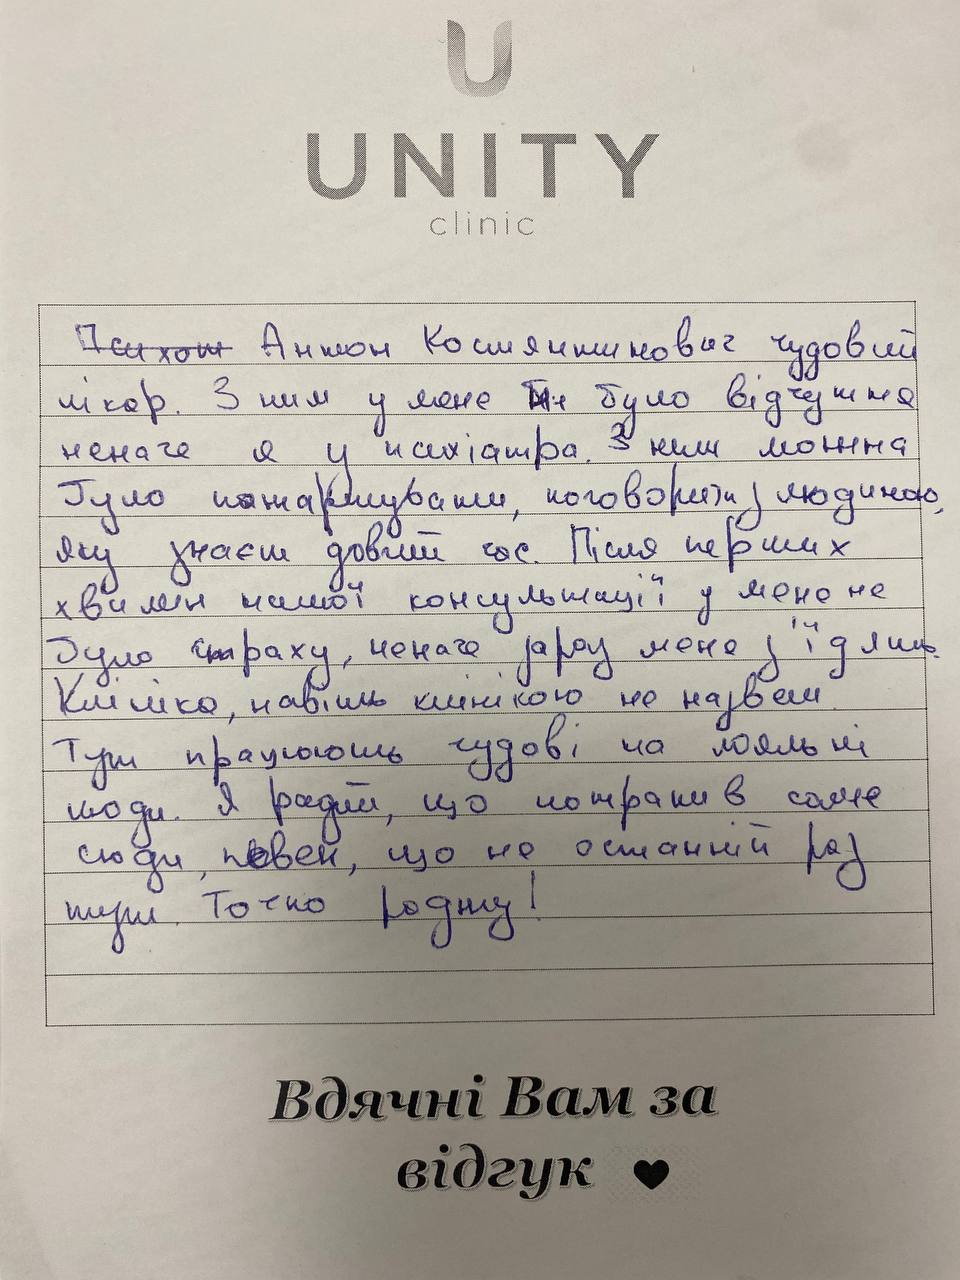 U
UNITY
clinic
Антон Костянтинович чудовий
лікар. З ним у мене не було відчуття
неначе я у психіатра. З ним можна
було пожартувати, поговорити з людиною,
яку знаєш довгий час. Після перших
хвилин нашої консультації у мене не
було страху, неначе зараз мене з'їдять.
Клініка, навіть клінікою не назвеш.
Тут працюють чудові та лояльні
люди. Я радий, що потрапив саме
сюди, певен, що не останній раз
тут. Точно раджу!
Вдячні Вам за
відгук